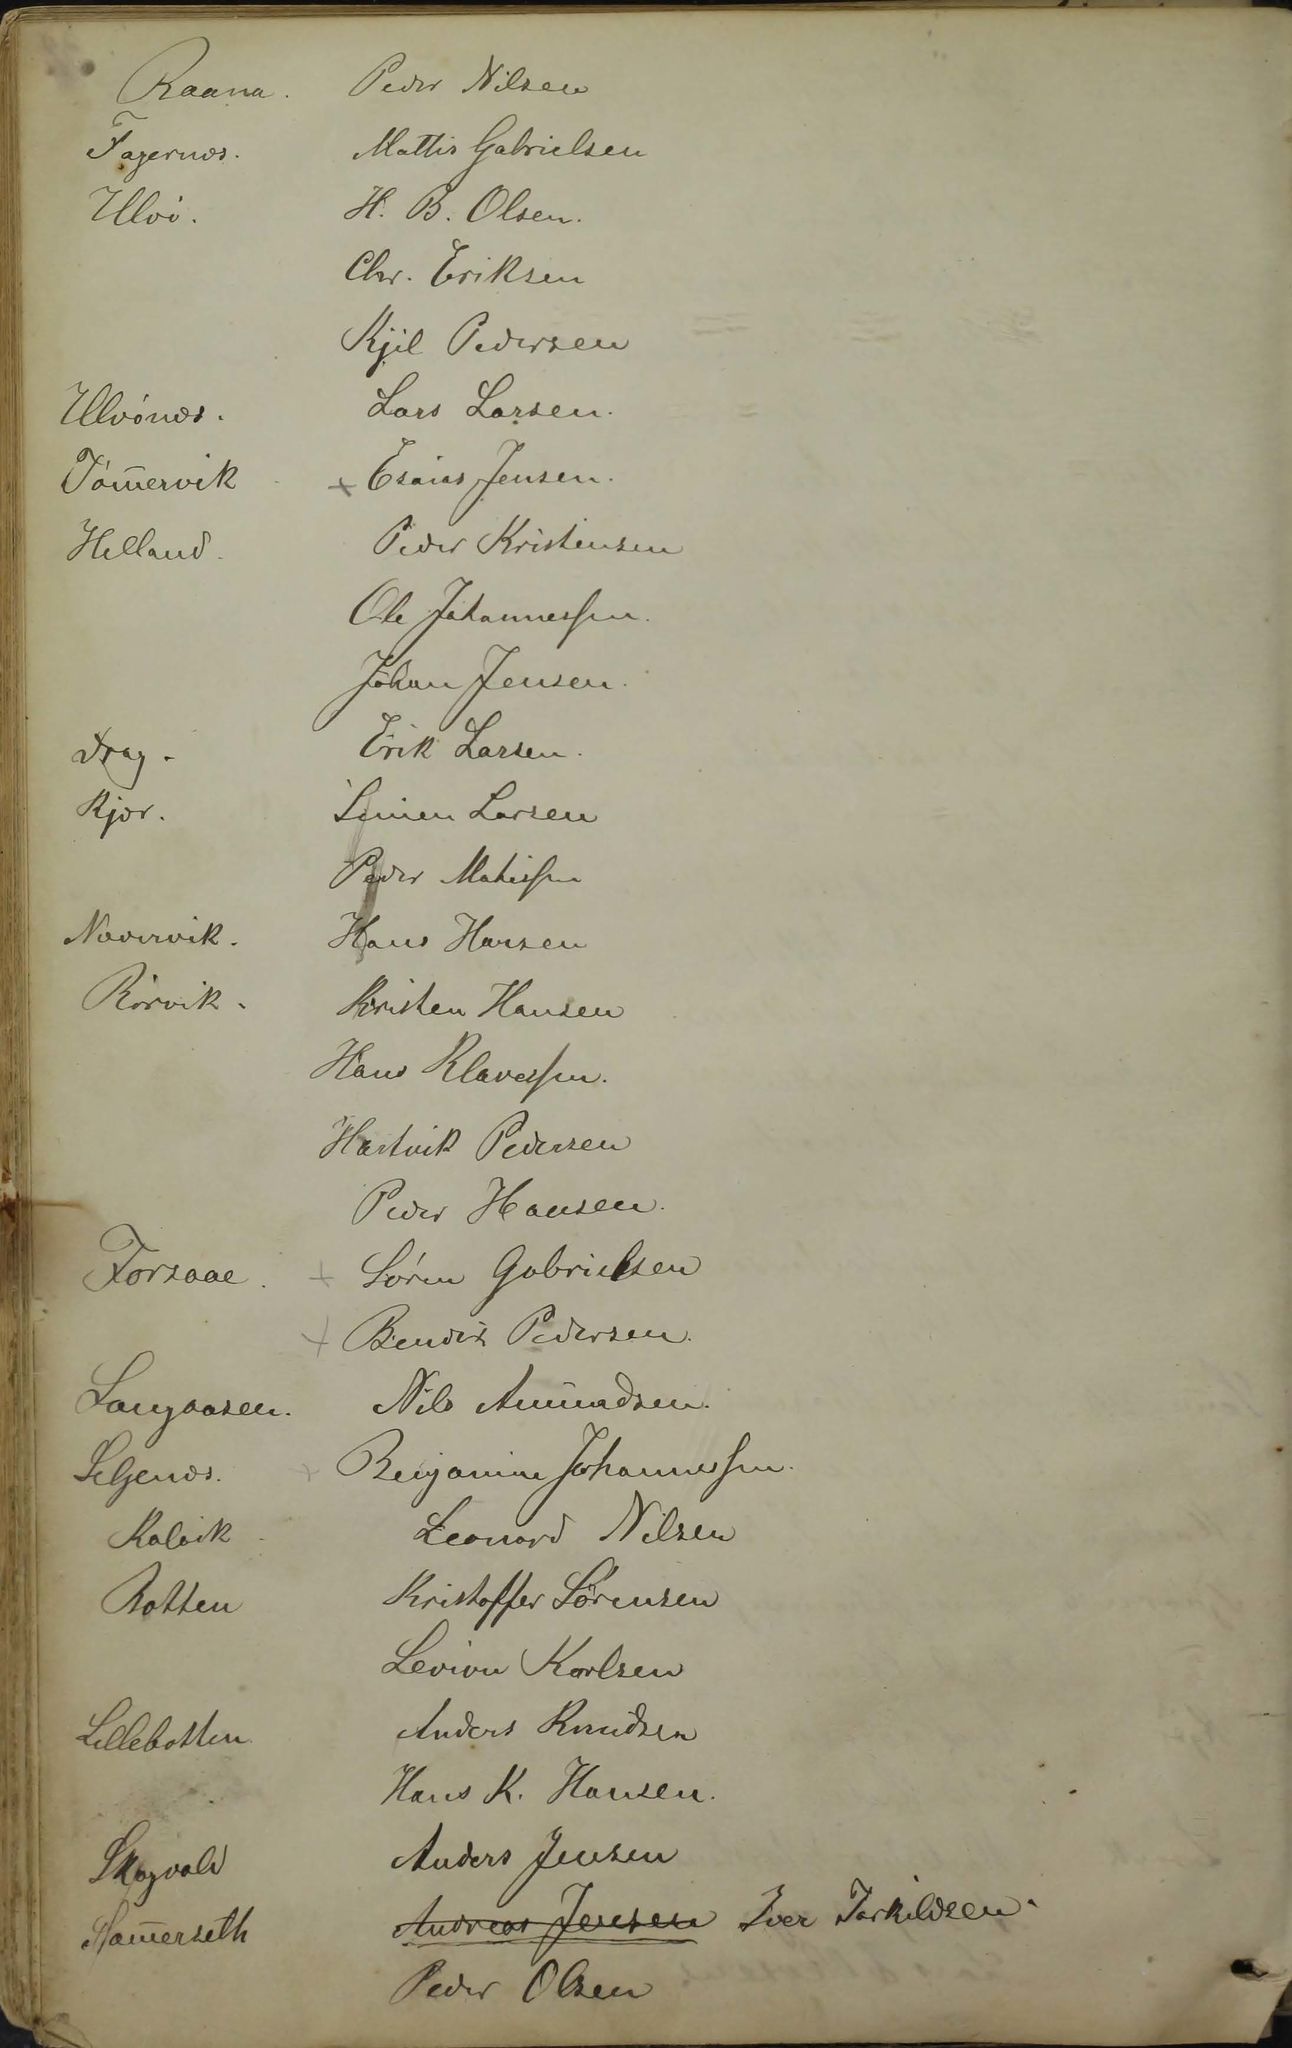 Raana. Peder Nilsen
Fagernæs. Mattis Gabrielsen
Ulvö. H. B. Olsen.
Chr. Eriksen
Kjil Pedersen
Ulvönæs. Lars Larsen.
Töm̅ervik + Esaias Jensen.
Helland. Peder Kristensen
Ole Johannessen.
Johan Jensen.
Drag. Erik Larsen.
Kjær. Simen Larsen
Peder Matissen
Növervik. Hans Hansen
Rörvik. Kristen Hansen
Hans Klavessen.
Hartvik Pedersen
Peder Hansen.
Forsaae. + Sören Gabrielsen
+ Bendix Pedersen.
Langaasen. Nils Amundsen.
Seljenæs. + Benjamin Johannessen.
Kalvik Leonard Nilsen
Botten Kristoffer Sörensen
Levion Karlsen
Lillebotten. Anders Knudsen
Hans K. Hansen.
Skogvold Anders Jensen
Ham̅erseth Andreas Jensen Iver Torkildsen.
Peder Olsen